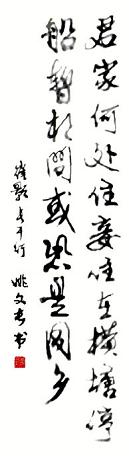 君家何处住妾住在横塘停
船暂相问或恐是同乡
崔颢长干行
姚文书书